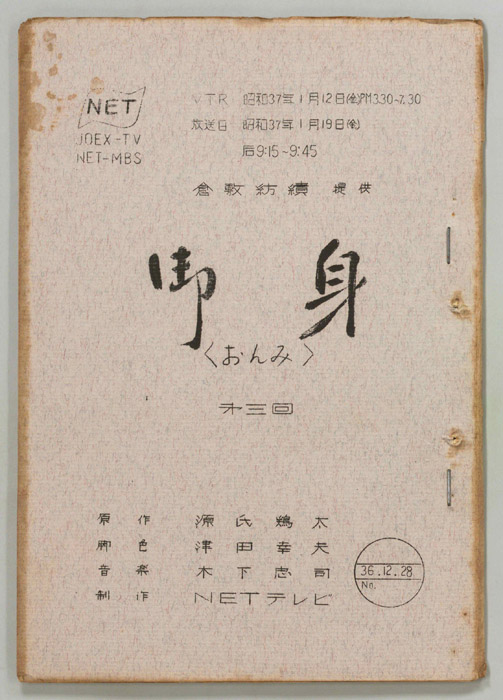 NET
JOEX-TV
NET-MBS
VTR 昭和37年1月12日(金)PM3.30~7.30
放送日 昭和37年1月19日(金)
后9:15~9:45
倉敷紡績 提供
御身
〈おんみ〉
オ三回
原作 源氏鶏太
脚色 津田幸夫
音楽 木下忠司
制作 NETテレビ
36.12.28
No.